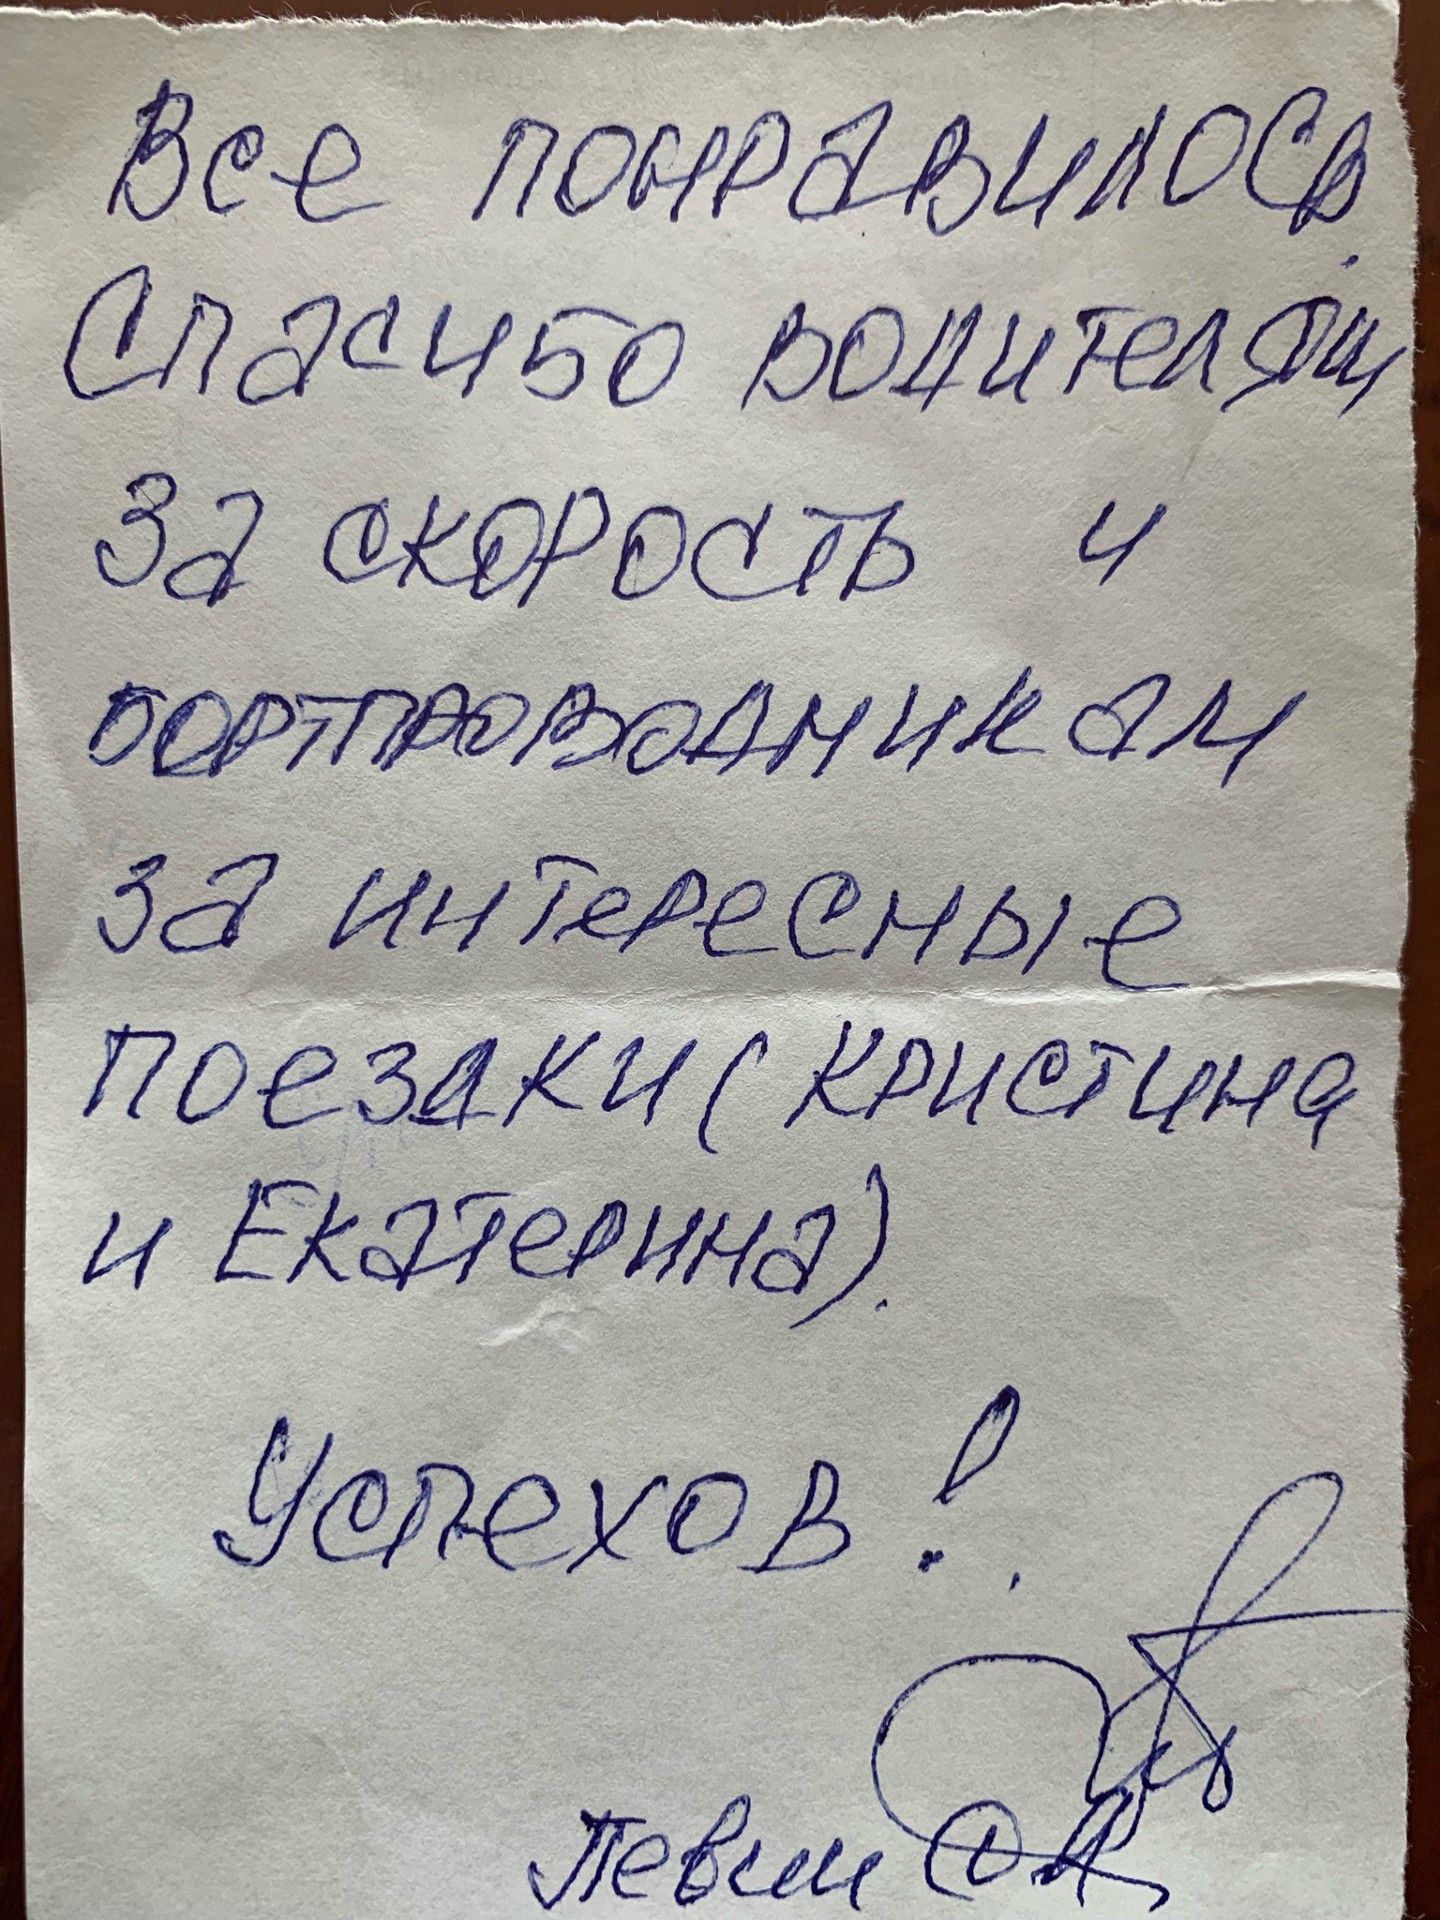 Все понравилось.
Спасибо водителям
за скорость и
бортпроводникам
за интересные
поездки (Кристина
и Екатерина).
Успехов!